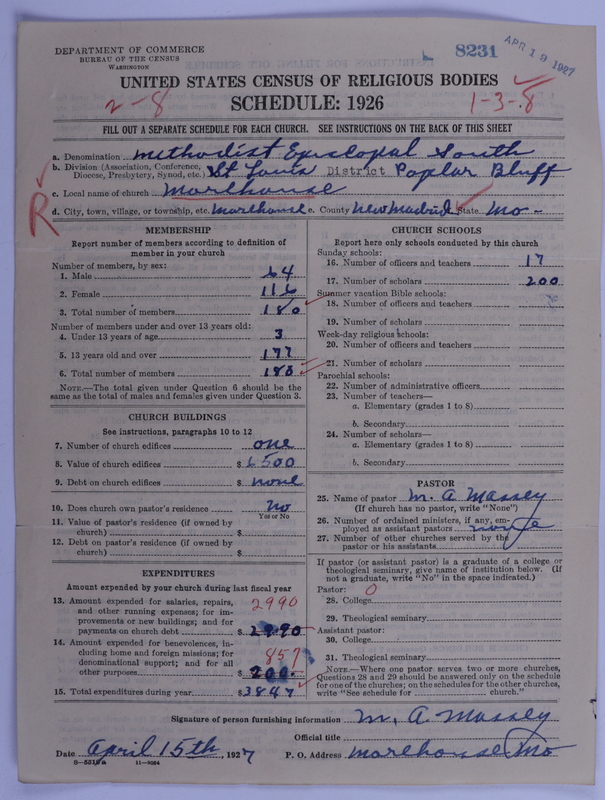 DEPARTMENT OF COMMERCE
BUREAU OF THE CENSUS
WASHINGTON
8231
APR 19 1927
UNITED STATES CENSUS OF RELIGIOUS BODIES
2-8
SCHEDULE: 1926
1-3-8
FILL OUT A SEPARATE SCHEDULE FOR EACH CHURCH. SEE INSTRUCTIONS ON THE BACK OF THIS SHEET
a. Denomination Methodist Episcopal South
b. Division (Association, Conference, Diocese, Presbytery, Synod, etc.) St Louis District Poplar Bluff
c. Local name of church Morehouse
R
d. City, town, village, or township, etc. Morehouse e. County New Madrid State Mo-
MEMBERSHIP
Report number of members according to definition of
member in your church
Number of members, by sex:
1. Male 64
2. Female 116
3. Total number of members 180
Number of members under and over 13 years old:
4. Under 13 years of age 3
5. 13 years old and over 177
6. Total number of members 180
NOTE.—The total given under Question 6 should be the
same as the total of males and females given under Question 3.
CHURCH BUILDINGS
See instructions, paragraphs 10 to 12
7. Number of church edifices one
8. Value of church edifices $ 6500
9. Debt on church edifices $ none
10. Does church own pastor's residence no
Yes or No
11. Value of pastor's residence (if owned by
church) $
12. Debt on pastor's residence (if owned by
church) $
EXPENDITURES
Amount expended by your church during last fiscal year
13. Amount expended for salaries, repairs, 2990
and other running expenses; for im-
provements or new buildings; and for
payments on church debt $ 2990
14. Amount expended for benevolences, in-
cluding home and foreign missions; for 857
denominational support; and for all
other purposes $ 200.
15. Total expenditures during year $ 3847
CHURCH SCHOOLS
Report here only schools conducted by this church
Sunday schools:
16. Number of officers and teachers 17
17. Number of scholars 200
Summer vacation Bible schools:
18. Number of officers and teachers
19. Number of scholars
Week-day religious schools:
20. Number of officers and teachers
21. Number of scholars
Parochial schools:
22. Number of administrative officers
23. Number of teachers—
a. Elementary (grades 1 to 8)
b. Secondary
24. Number of scholars—
a. Elementary (grades 1 to 8)
b. Secondary
PASTOR
25. Name of pastor M. A Massey
(If church has no pastor, write "None")
26. Number of ordained ministers, if any, em-
ployed as assistant pastors none
27. Number of other churches served by the
pastor or his assistants
If pastor (or assistant pastor) is a graduate of a college or
theological seminary, give name of institution below. (If
not a graduate, write "No" in the space indicated.)
Pastor: 0
28. College
29. Theological seminary
Assistant pastor:
30. College
31. Theological seminary
NOTE.—Where one pastor serves two or more churches,
Questions 28 and 29 should be answered only on the schedule
for one of the churches; on the schedules for the other churches,
write "See schedule for church."
Signature of person furnishing information M. A. Massey
Official title
Date April 15th, 1927 P. O. Address Morehouse Mo
11-8084